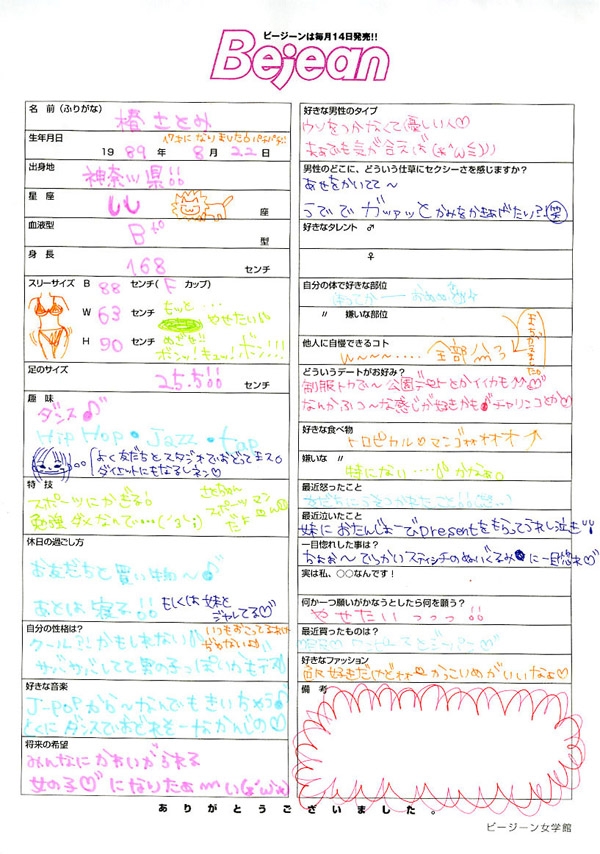 ビージーンは毎月14日発売!!
Bejean
名 前 (ふりがな)
橙 さとみ
生年月日
1989年 8月22日
出身地
神奈川県!!
星 座
しし 座
血液型
B 型
身 長
168 センチ
スリーサイズ B 88 センチ( F カップ)
W 63 センチ
もっと・・・
やせたい
H 90 センチ
ボンッ!キュッ!ボン!!!
足のサイズ
25.5!! センチ
趣 味
ダンス♪
HipHop・Jazz・tap
よく友だちとスタジオでおどってまス。
ダイエットにもなるしネン♡
特 技
スポーツにかぎる!
勉強ダメなので…(´3`;)
休日の過ごし方
お友だちと買い物〜♪
あとは寝る!!
もしくは妹と
ジャレてる♡
自分の性格は?
クール?!かもしれない
サバサバしてて男の子っぽいかもデス
好きな音楽
J-POPから〜なんでもきいちゃう♪
とくにダンスでおどれそーなかんじの♡
将来の希望
みんなにかわいがられる
女の子♡になりたぁーい(≧ω≦)
好きな男性のタイプ
ウソをつかなくて優しい人♡
男性のどこに、どういう仕草にセクシーさを感じますか?
あせをかいてて〜
うででガァァッとかみをかきあげたい?!笑
好きなタレント ♂
♀
自分の体で好きな部位
〃 嫌いな部位
他人に自慢できるコト
全部
どういうデートがお好み?
制服トカで〜公園デートとかイイカモ♡
なんかふつーな感じが好きかも♪チャリンコとか♡
好きな食べ物
トロピカル♡マンゴ
嫌いな 〃
特にない…かなぁ。
最近怒ったこと
最近泣いたこと
妹におたんじょーびPresentをもらってうれし泣き!!
一目惚れした事は?
ちょぉ〜でっかいスティッチのぬいぐるみに一目惚れ♡
実は私、○○なんです!
何か一つ願いがかなうとしたら何を願う?
やせたいっっっ!!
最近買ったものは?
好きなファッション
色々好きだけどネ かっこいめがいいなぁ♡
備 考
ありがとうございました。
ビージーン女学館